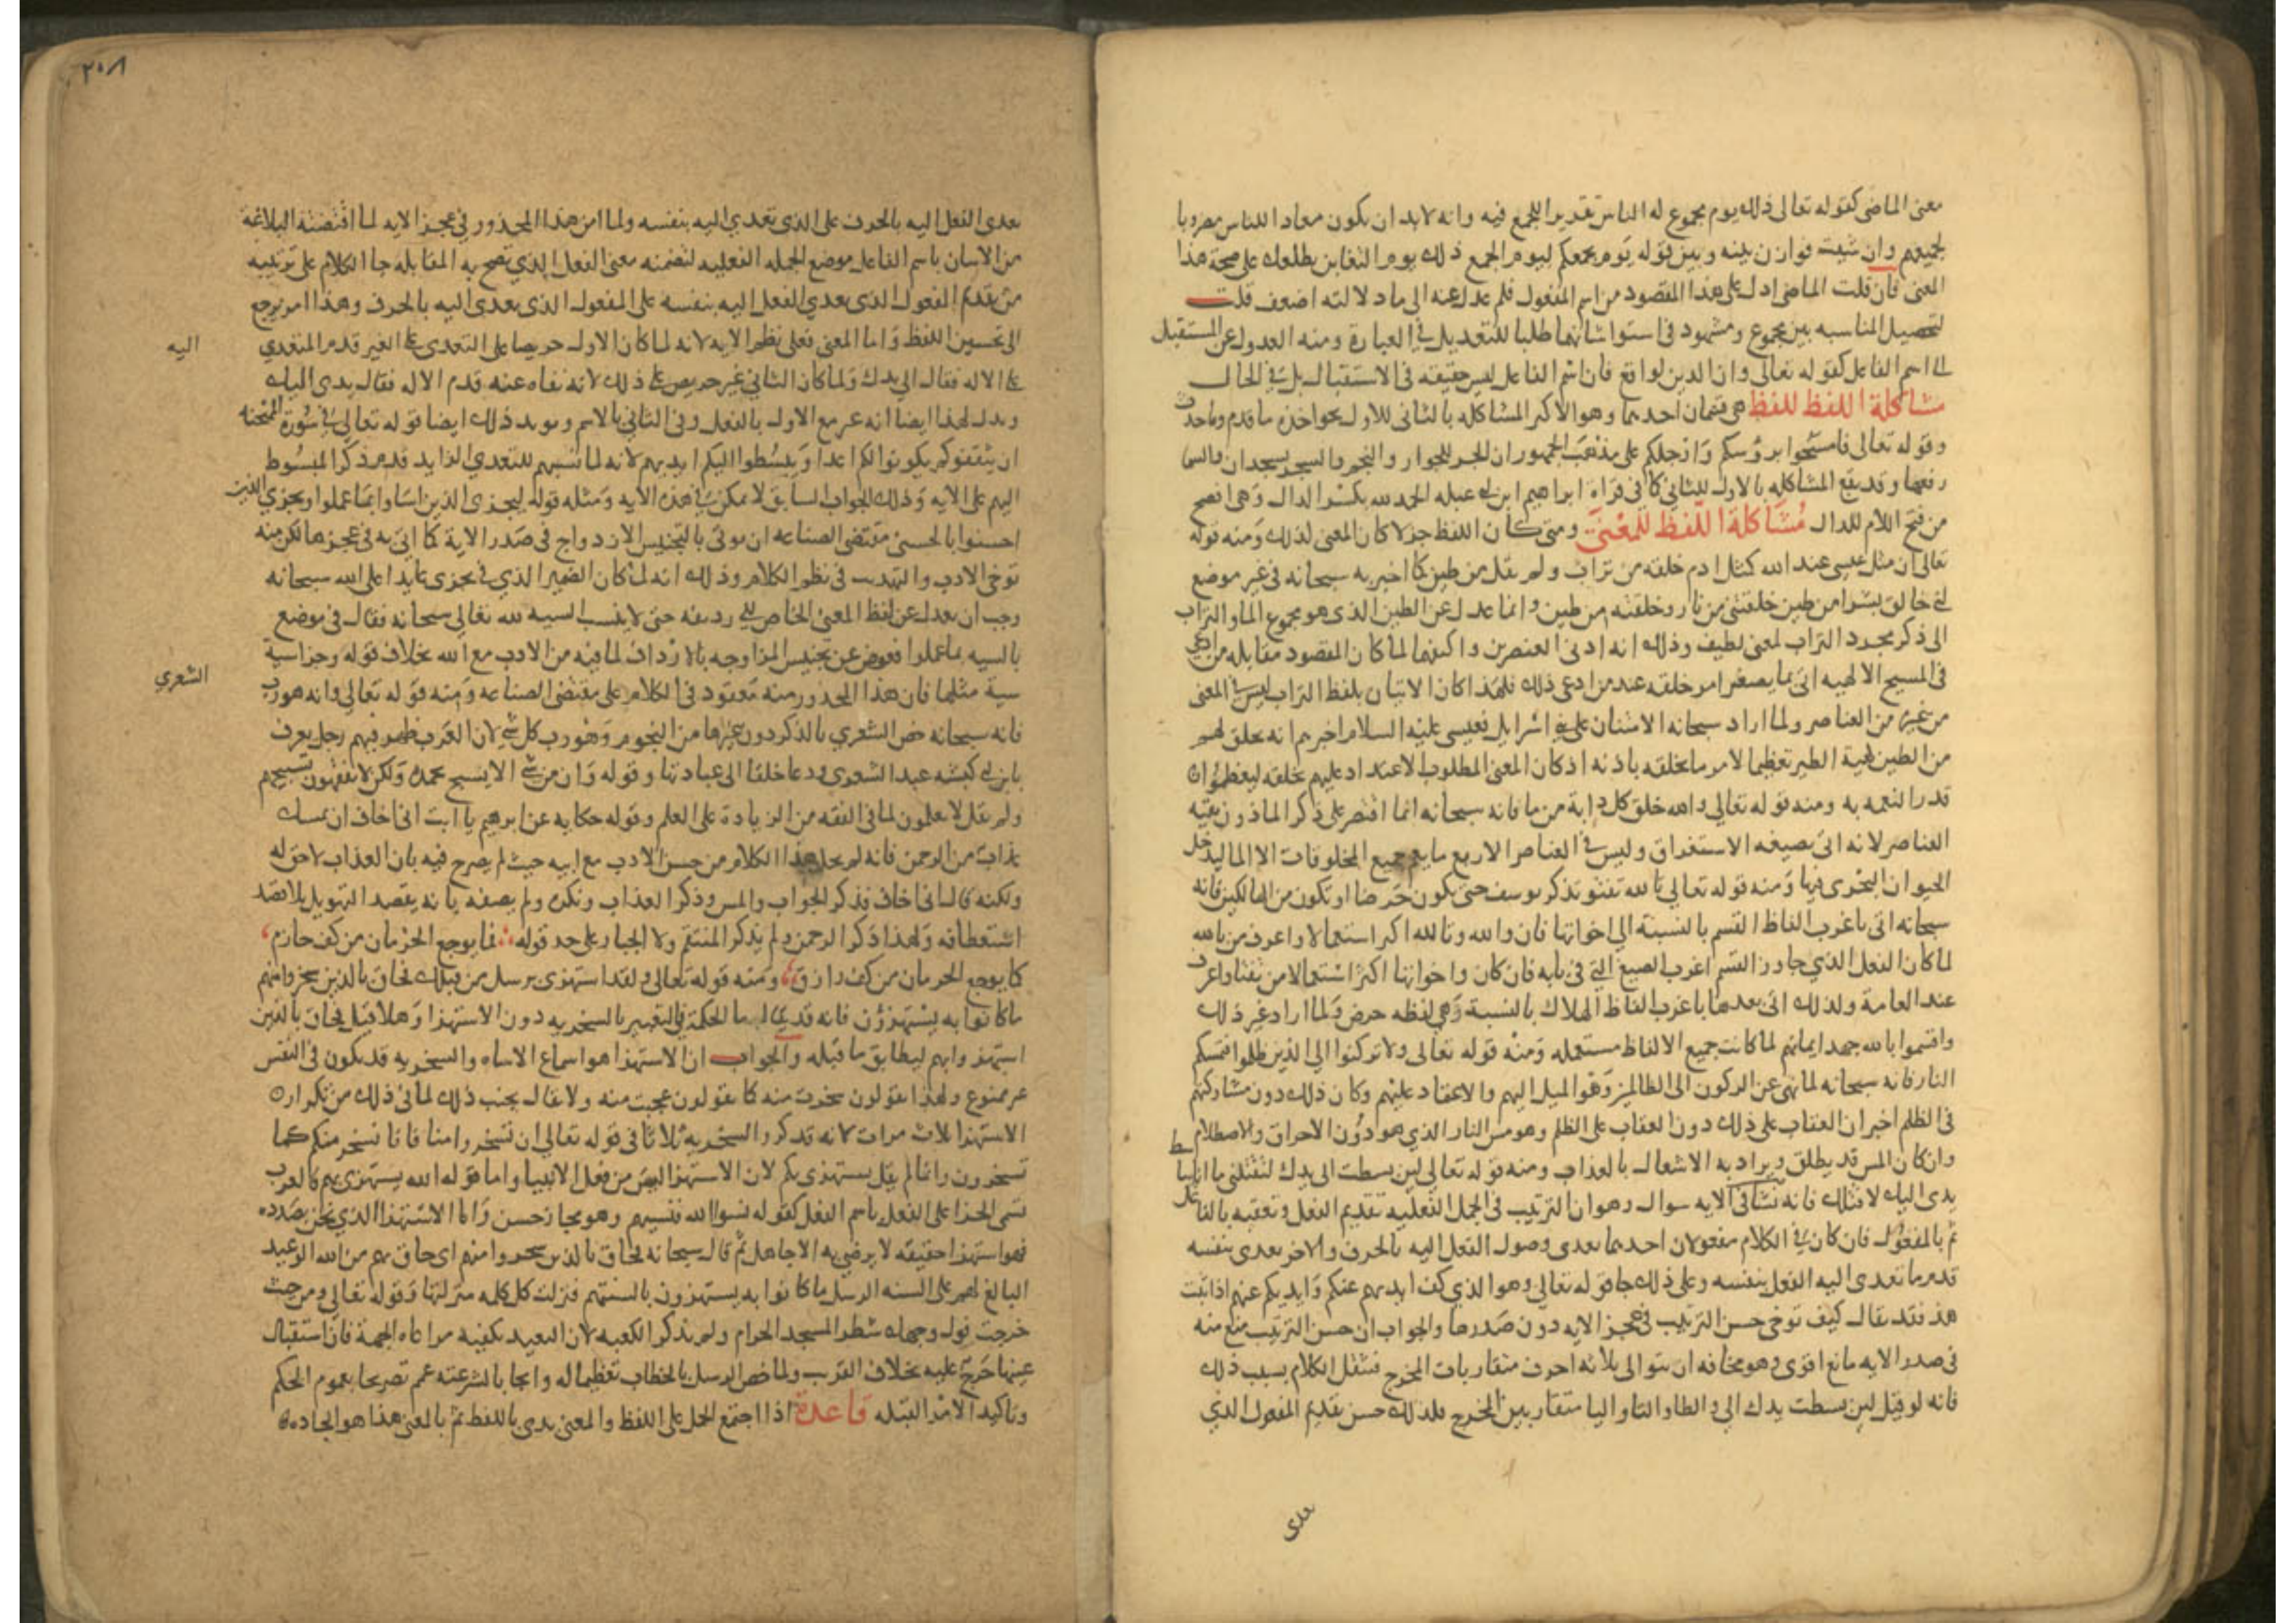 معنى الماضى كقوله تعالى ذلك يوم مجموع له الناس تقديرا للجمع فيه وانه لابد ان يكون معادا للناس مضروبا
لجميعهم وان شيت فوازن بينه وبين قوله يوم يجمعكم ليوم الجمع ذلك يوم التغابن يطلعك على صحة هذا
المعنى فان قلت الماضى ادل على هذا المقصود من اسم المفعول فلم عدل عنه الى ما دلالته اضعف قلت
لتحصيل المناسبه بين مجموع ومشهود فى استوا شانهما طلبا للتعديل فى العبارة ومنه العدول عن المستقبل
الى اسم الفاعل كقوله تعالى وان الدين لواقع فان اسم الفاعل ليس حقيقه فى الاستقبال بل فى الحال
مشاكلة اللفظ للفظ هى قسمان احدهما وهو الاكثر المشاكله بالثانى للاول نحو اخذه ما قدم وما حدث
وقوله تعالى فامسحوا بروسكم وارجلكم على مذهب الجمهور ان الجر للجوار والنجم والشجر يسجدان والسما
رفعها وقد يقع المشاكله بالاول للثانى كما فى قراة ابراهيم ابن ابى عبله الحمد لله بكسر الدال وهى افصح
من فتح اللام للدال مشاكلة اللفظ للمعنى ومتى كان اللفظ جزلا كان المعنى لذلك ومنه قوله
تعالى ان مثل عيسى عند الله كمثل ادم خلقه من تراب ولم يقل من طين كما اخبر به سبحانه فى غير موضع
انى خالق بشرا من طين خلقتنى من نار وخلقته من طين وانما عدل عن الطين الذى هو مجموع الما والتراب
الى ذكر مجرد التراب لمعنى لطيف وذلك انه ادنى العنصرين واكثفهما لما كان المقصود مقابله من ادعى
فى المسيح الالهيه اتى بما يصغر امر خلقه عند من ادعى ذلك فلهذا كان الاتيان بلفظ التراب ليس فى المعنى
من غيره من العناصر ولما اراد سبحانه الامتنان على بنى اسرايل بعيسى عليه السلام اخبرهم انه يخلق لهم
من الطين كهية الطير تعظيما لامر ما يخلقه باذنه اذ كان المعنى المطلوب الاعتداد عليهم بخلقه ليعظموا
قدر النعمه به ومنه قوله تعالى والله خلق كل دابة من ما فانه سبحانه انما اقتصر على ذكر الما دون بقيه
العناصر لانه اتى بصيغه الاستغراق وليس فى العناصر الاربع ما يعم جميع المخلوقات الا الما ليدخل
الحيوان البحرى فيها ومنه قوله تعالى تالله تفتو تذكر يوسف حتى تكون حرضا او تكون من الهالكين فانه
سبحانه اتى باغرب الفاظ القسم بالنسبة الى اخواتها فان والله وبالله اكثر استعمالا واعرف من تالله
لما كان الفعل الذى جاور القسم اغرب الصيغ التى فى بابه فان كان واخواتها اكثر استعمالا من تفتا واعرف
عند العامة ولذلك اتى بعدها باغرب الفاظ الهلاك بالنسبة وهى لفظه حرض ولما اراد غير ذلك
واقسموا بالله جهد ايمانهم لما كانت جميع الالفاظ مستعمله ومنه قوله تعالى ولا تركنوا الى الذين ظلموا فتمسكم
النار فانه سبحانه لما نهى عن الركون الى الظالمين وهو الميل اليهم والاعتماد عليهم وكان ذلك دون مشاركتهم
فى الظلم اخبر ان العقاب على ذلك دون العقاب على الظلم وهو مس النار الذى هو دون الاحراق والاصطلام
وان كان المس قد يطلق ويراد به الاشعال بالعذاب ومنه قوله تعالى لين بسطت الى يدك لتقتلنى ما انا بباسط
يدى اليك لاقتلك فانه نشا فى الايه سوال وهو ان الترتيب فى الجمل الفعليه تقديم الفعل وتعقيبه بالفاعل
ثم بالمفعول فان كان فى الكلام مفعولان احدهما يعدى وصول الفعل اليه بالحرف والاخر يعدى بنفسه
قدم ما تعدى اليه الفعل بنفسه وعلى ذلك جا قوله تعالى وهو الذى كف ايديهم عنكم وايديكم عنهم اذا ثبت
هذا فقد يقال كيف توخى حسن الترتيب فى عجز الايه دون صدرها والجواب ان حسن الترتيب منع منه
فى صدر الايه مانع اقوى وهو مخافه ان يتوالى ثلاثه احرف متقاربات المخرج فيثقل الكلام بسبب ذلك
فانه لو قيل لين بسطت يدك الى والطا والتا واليا متقاربين المخرج فلذلك حسن تقديم المفعول الذى
يعدى
٢٥٨
يعدى الفعل اليه بالحرف على الذى تعدى اليه بنفسه ولما امن هذا المحذور فى عجز الايه لما اقتضته البلاغة
من الاتيان باسم الفاعل موضع الجمله الفعليه لتضمنه معنى الفعل الذى تصح به المقابله جا الكلام على ترتيبه
من تقديم المفعول الذى يعدى الفعل اليه بنفسه على المفعول الذى يعدى اليه بالحرف وهذا امر يرجع
الى تحسين اللفظ واما المعنى فعلى نظم الايه لانه لما كان الاول حريصا على التعدى على الغير قدم المتعدى
اليه
على الاله فقال الى يدك ولما كان الثانى غير حريص على ذلك لانه نفاه عنه قدم الاله فقال يدى اليك
ويدل لهذا ايضا انه عبر مع الاول بالفعل وفى الثانى بالاسم ويويد ذلك ايضا قوله تعالى فى سورة الممتحنه
ان يثقفوكم يكونوا لكم اعدا ويبسطوا اليكم ايديهم لانه لما نسبهم للتعدى الزايد قدم ذكر المبسوط
اليهم على الايه وذلك الجواب السابق لا يمكن فى هذه الايه ومثله قوله ليجزى الذين اساوا بما عملوا ويجزى الذين
احسنوا بالحسنى مقتضى الصناعه ان يوتى بالتجنيس الازدواج فى صدر الاية كما اتى به فى عجزها لكن منه
توخى الادب والتهذيب فى نظم الكلام وذلك انه لما كان الضمير الذى فى يجزى عايدا على الله سبحانه
وجب ان يعدل عن لفظ المعنى الخاص الى رديفه حتى لا ينسب السيه لله تعالى سبحانه فقال فى موضع
بالسيه بما عملوا فعوض عن تجنيس المزاوجه بالارداف لما فيه من الادب مع الله بخلاف قوله وجزا سية
سية مثلها فان هذا المحذور منه مفقود فى الكلام على مقتضى الصناعه ومنه قوله تعالى وانه هو رب
الشعري
فانه سبحانه خص الشعرى بالذكر دون غيرها من النجوم وهو رب كل شى لان العرب ظهر فيهم رجل يعرف
بابن ابى كبشه عبد الشعرى ودعا خلقا الى عبادتها وقوله وان من شى الا يسبح بحمده ولكن لا تفقهون تسبيحهم
ولم يقل لا يعلمون لما فى الفقه من الزيادة على العلم وقوله حكايه عن ابرهيم يا ابت انى اخاف ان يمسك
عذاب من الرحمن فانه لم يخل هذا الكلام من حسن الادب مع ابيه حيث لم يصرح فيه بان العذاب لاحق له
ولكنه قال انى اخاف فذكر الخوف والمس وذكر العذاب ونكره ولم يصفه بانه يقصد التهويل بل قصد
استعطافه ولهذا ذكر الرحمن ولم يذكر المنتقم ولا الجبار على حد قوله فما يوجع الحرمان من كف حازم
كما يوجع الحرمان من كف رازق ومنه قوله تعالى ولقد استهزى برسل من قبلك فحاق بالذين سخروا منهم
ماكانوا به يستهزؤن فانه قد يقال ما الحكمة فى التعبير بالسخريه دون الاستهزا وهلا قيل فحاق بالذين
استهزوا بهم ليطابق ما قبله والجواب ان الاستهزا هو اسماع الاساه والسخريه قد يكون فى النفس
غير ممنوع ولهذا يقولون سخرت منه كما يقولون عجبت منه ولا يقال يجنب ذلك لما فى ذلك من تكرار
الاستهزا ثلاث مرات لانه قد كرر السخريه ثلاثا فى قوله تعالى ان تسخروا منا فانا نسخر منكم كما
تسخرون وانما لم يقل يستهزى بكم لان الاستهزا ليس من فعل الانبيا واما قوله الله يستهزى بهم فالعرب
تسمى الجزا على الفعل باسم الفعل كقوله نسوا الله فنسيهم وهو مجاز حسن واما الاستهزا الذى نحن بصدده
فهو استهزا حقيقه لا يرضى به الا جاهل ثم قال سبحانه فحاق بالذين سخروا منهم اى حاق بهم من الله الوعيد
البالغ لهم على السنه الرسل ما كانوا به يستهزون بالسنتهم فنزلت كل كلمه منزلتها وقوله تعالى ومن حيث
خرجت فول وجهك شطر المسجد الحرام ولم يذكر الكعبه لان البعيد يكفيه مراعاه الجهة فان استقبال
عينها حرج عليه بخلاف القريب ولما خص الرسل بالخطاب تعظيما له وايجابا لشرعته عمم تصريحا بعموم الحكم
وتاكيدا لامر القبله قاعدة اذا اجتمع الحمل على اللفظ والمعنى بدى باللفظ ثم بالمعنى هذا هو الجاده